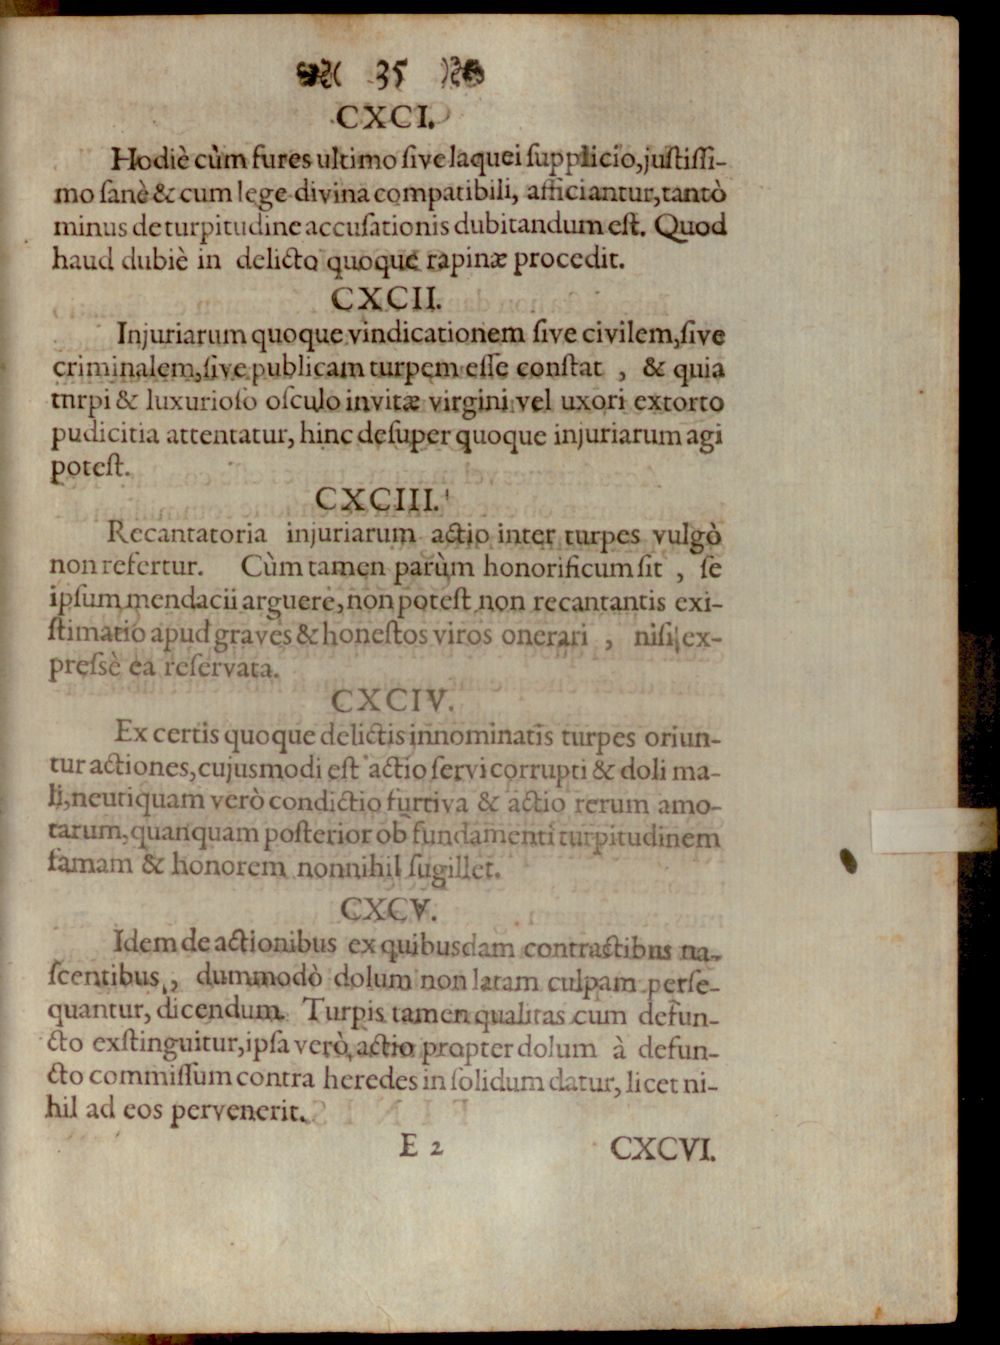 35
CXCI.
Hodiè cùm fures ultimo sive laquei supplicio, justissi-
mo sanè & cum lege divina compatibili, afficiantur, tantò
minus de turpitudine accusationis dubitandum est. Quod
haud dubiè in delicto quoque rapinæ procedit.
CXCII.
Injuriarum quoque vindicationem sive civilem, sive
criminalem, sive publicam turpem esse constat , & quia
tnrpi & luxurioso osculo invitæ virgini vel uxori extorto
pudicitia attentatur, hinc desuper quoque injuriarum agi
potest.
CXCIII.
Recantatoria injuriarum actio inter turpes vulgò
non refertur. Cùm tamen parùm honorificum sit , se
ipsum mendacii arguere, non potest non recantantis exi-
stimatio apud graves & honestos viros onerari , nisi ex-
pressè ea reservata.
CXCIV.
Ex certis quoque delictis innominatis turpes oriun-
tur actiones, cujusmodi est actio servi corrupti & doli ma-
li, neutiquam verò condictio furtiva & actio rerum amo-
tarum, quanquam posterior ob fundamenti turpitudinem
famam & honorem nonnihil sugillet.
CXCV.
Idem de actionibus ex quibusdam contractibns na-
scentibus , dummodò dolum non latam culpam perse-
quantur, dicendum. Turpis tamen qualitas cum defun-
cto exstinguitur, ipsa verò actio propter dolum à defun-
cto commissum contra heredes in solidum datur, licet ni-
hil ad eos pervenerit.
E 2 CXCVI.